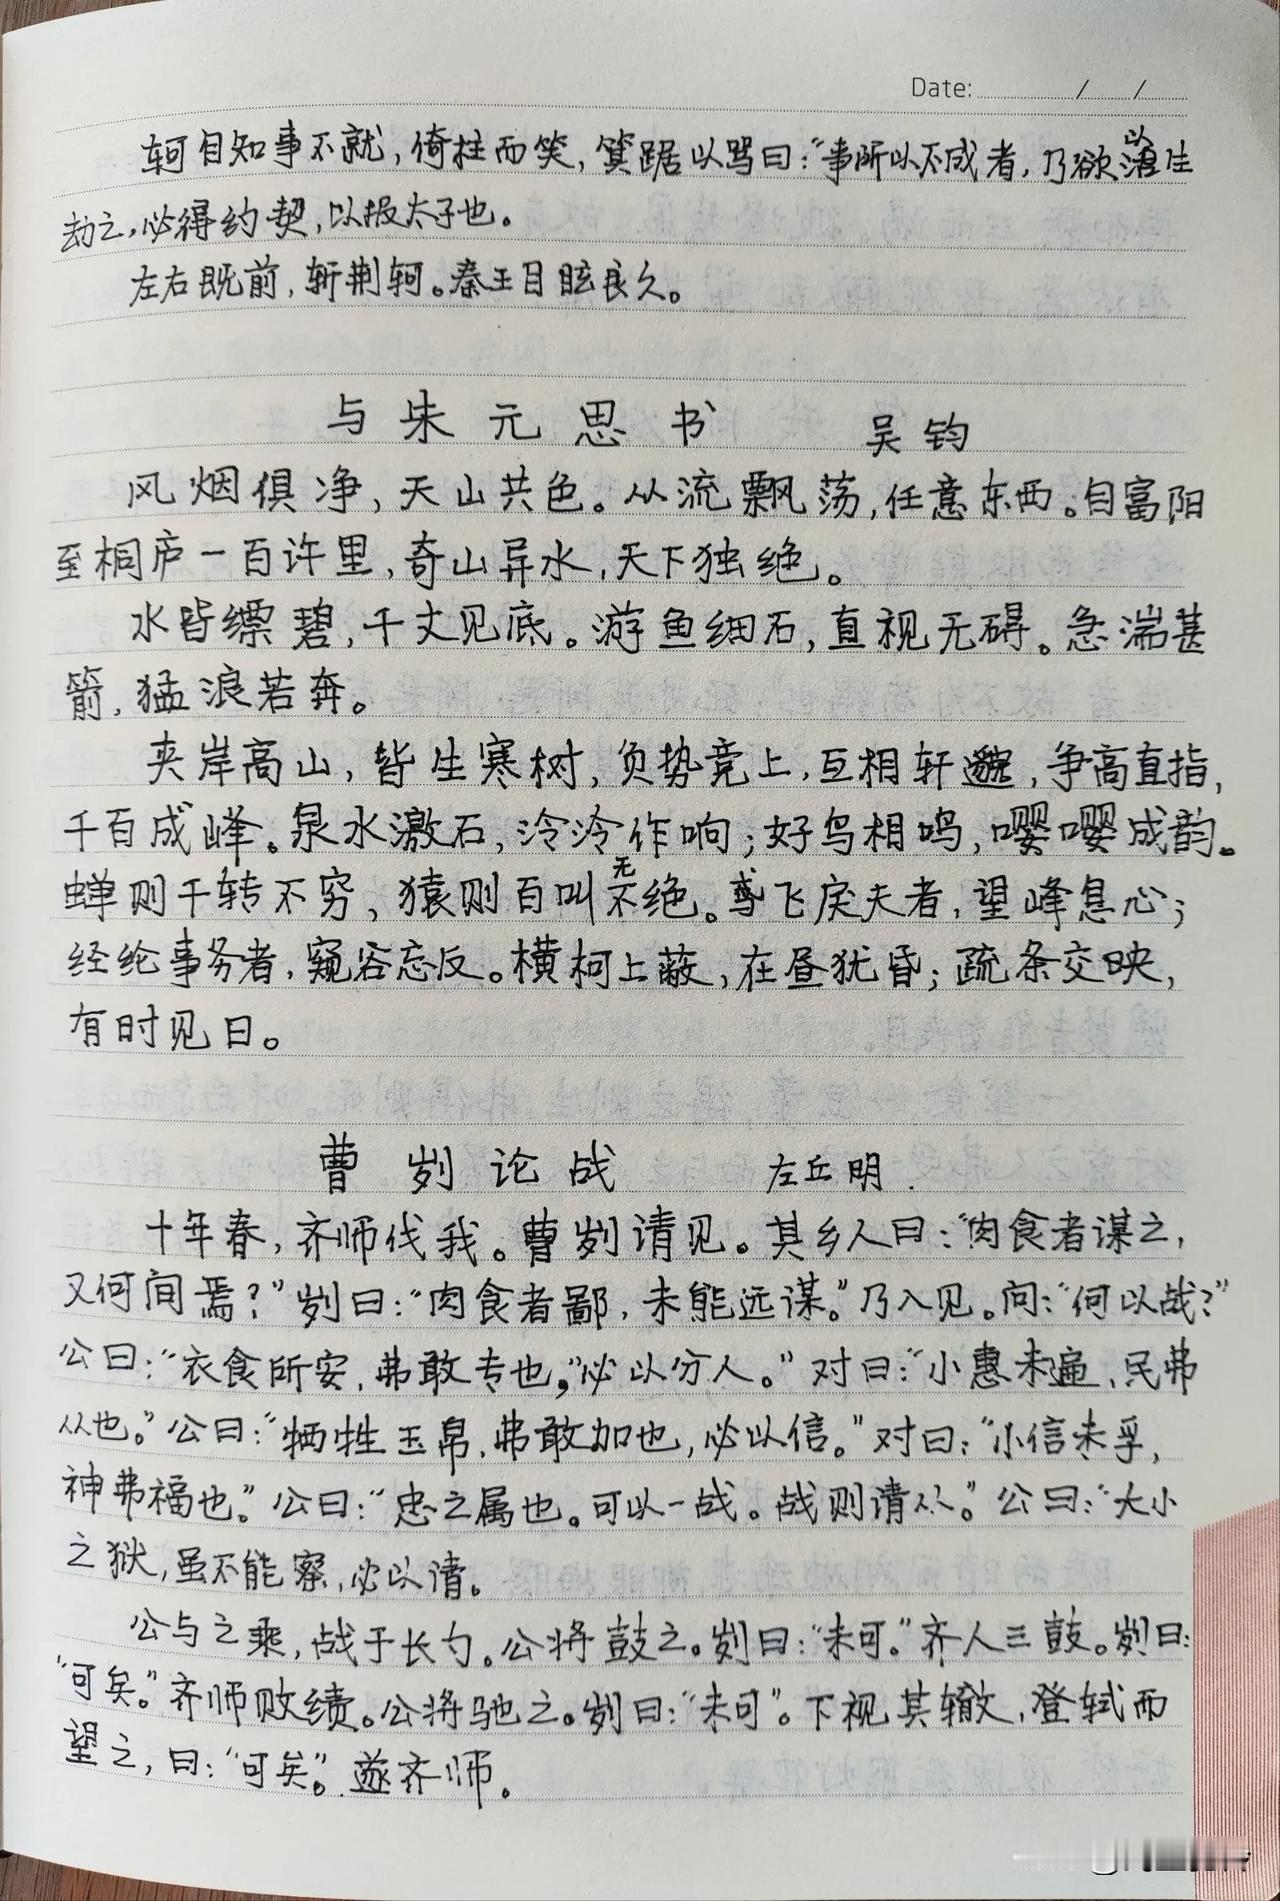 Date: / /
轲自知事不就，倚柱而笑，箕踞以骂曰：“事所以不成者，乃欲以生
劫之，必得约契，以报太子也。
左右既前，斩荆轲。秦王目眩良久。
与朱元思书 吴钧
风烟俱净，天山共色。从流飘荡，任意东西。自富阳
至桐庐一百许里，奇山异水，天下独绝。
水皆缥碧，千丈见底。游鱼细石，直视无碍。急湍甚
箭，猛浪若奔。
夹岸高山，皆生寒树，负势竞上，互相轩邈，争高直指，
千百成峰。泉水激石，泠泠作响；好鸟相鸣，嘤嘤成韵。
蝉则千转不穷，猿则百叫无绝。鸢飞戾天者，望峰息心；
经纶事务者，窥谷忘反。横柯上蔽，在昼犹昏；疏条交映，
有时见日。
曹刿论战 左丘明.
十年春，齐师伐我。曹刿请见。其乡人曰：“肉食者谋之，
又何间焉？”刿曰：“肉食者鄙，未能远谋。”乃入见。问：“何以战？”
公曰：“衣食所安，弗敢专也，”必以分人。”对曰：“小惠未遍，民弗
从也。”公曰：“牺牲玉帛，弗敢加也，必以信。”对曰：“小信未孚，
神弗福也。”公曰：“忠之属也。可以一战。战则请从。”公曰：“大小
之狱，虽不能察，必以请。
公与之乘，战于长勺。公将鼓之。刿曰：“未可。”齐人三鼓。刿曰：
“可矣。”齐师败绩。公将驰之。刿曰：“未可”。下视其辙，登轼而
望之，曰：“可矣”。遂齐师。